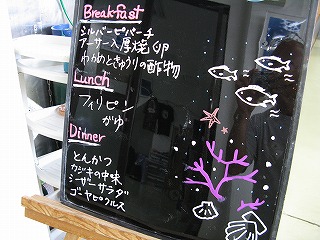 Breakfast
シルバーピバーチ
アーサー入厚焼卵
わかめときゅうりの酢物
Lunch
フィリピン
がゆ
Dinner
とんかつ
カジキの中味
シーザーサラダ
ゴーヤピックルス